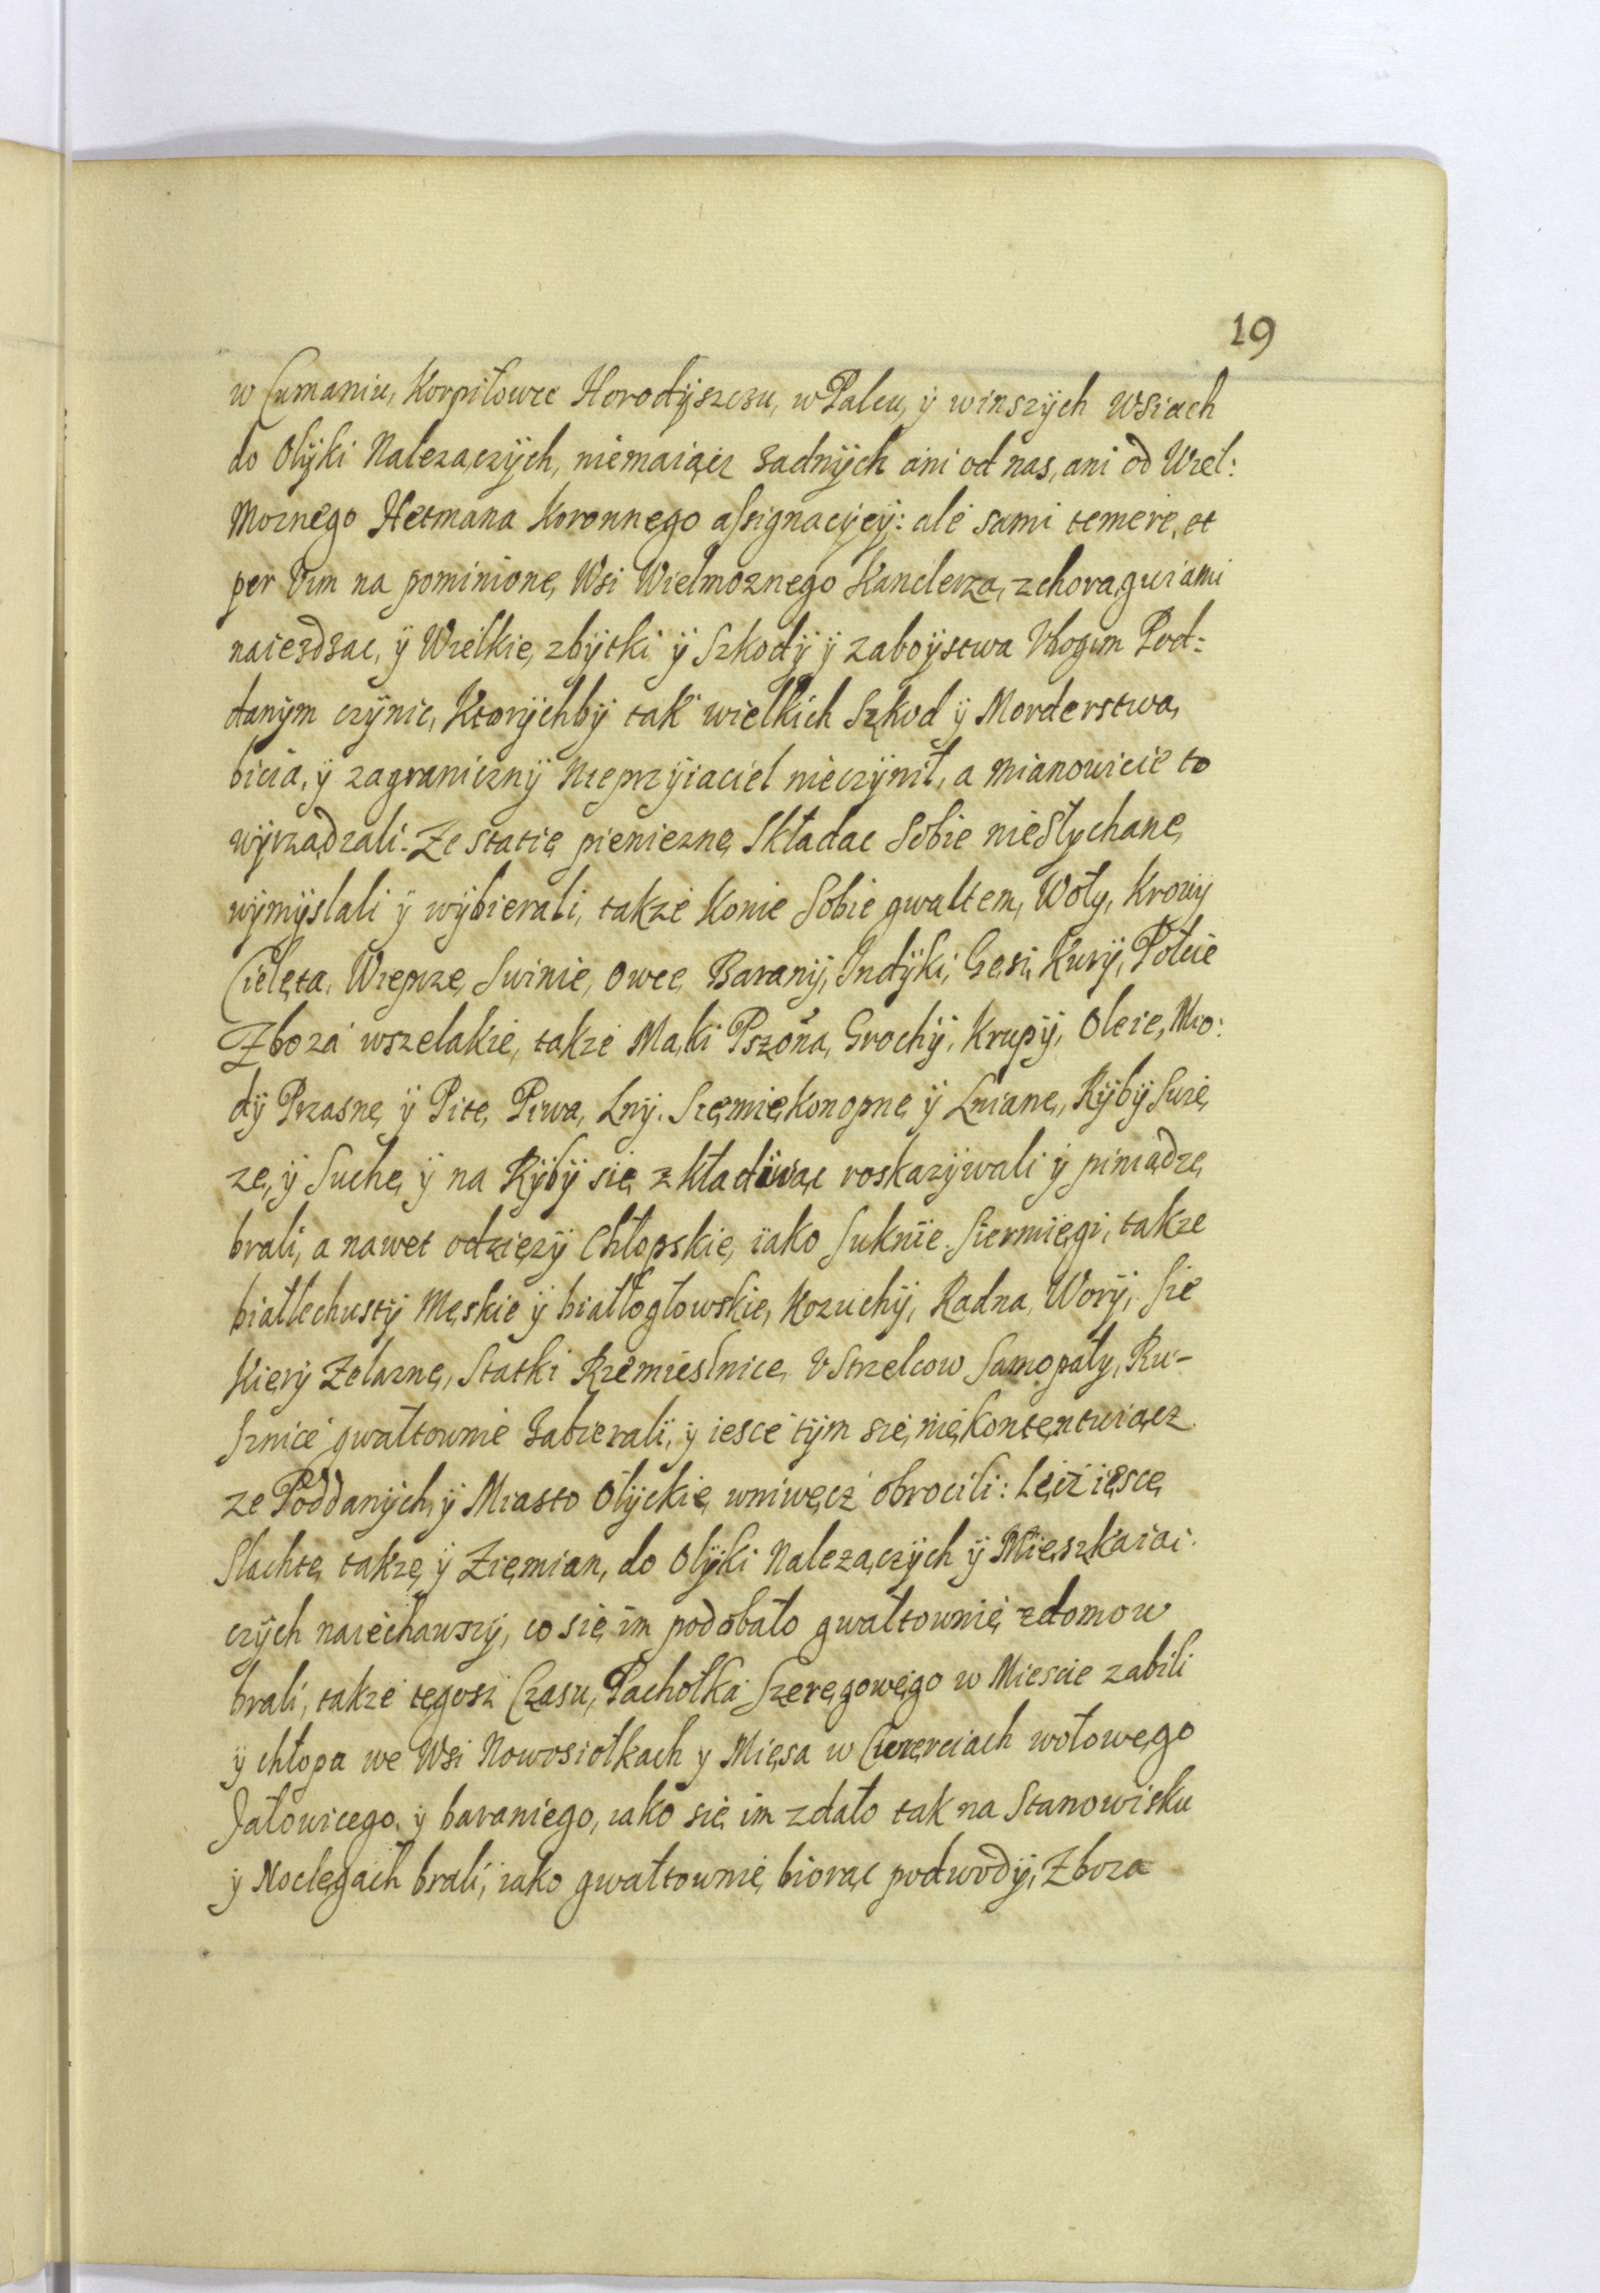 19
w Cumaniu, Korpiłowce Horodÿszczu, w Palcu, ÿ winszÿch Wsiach
do Olÿki Nalezączÿch, niemaiącz zadnÿch ani od nas, ani od Wiel:
moznego Hetmana Koronnego assignacÿeÿ: ale sami temere, et
per Vim na pominione, Wsi Wielmoznego Kanclerza, z chorągwiami
naiezdzac, ÿ Wielkie, zbÿtki ÿ Szkodÿ ÿ zaboÿstwa Vbogim Pod:
danÿm czÿnic, Ktorÿchbÿ tak wielkich Szkod ÿ Morderstwa,
bicia, ÿ zagranicznÿ Nieprzÿiaciel nieczÿnił, a mianowicie to
wÿrządzali: Ze statie pieniezne, Składac Sobie niesłychane,
wÿmÿslali ÿ wÿbierali, takze Konie Sobie gwałtem, Woły, Krowÿ
Cielęta, Wieprze, Swinie, Owce, Baranÿ, Indÿki, Gęsi, Kurÿ, Połcie
Zboza wszelakie, takze Mąki Pszona, Grochÿ, Krupÿ, Oleie, Mio:
dÿ Przasne, ÿ Pite, Piwa, Lnÿ, Sięmię Konopne ÿ Lniane, Rÿbÿ Swie,
ze, ÿ Suche, ÿ na Rÿbÿ się zkładÿwac roskazÿwali ÿ piniądze,
brali, a nawet odziezÿ Chłopskie, iako Suknie, Siermięgi, takze
białłechustÿ Męskie ÿ białłogłowskie, Kozuchÿ, Radna, Worÿ, Sie
Kierÿ Zelazne, Statki Rzemiesnice, V Strzelcow Samopały, Ru-
sznice gwałtownie zabierali, ÿ iesce tÿm się, nie Kontentuiącz
ze Poddanÿch, ÿ Miasto Olÿckie wniwecz obrocili: Lecz iesce,
Slachtę także ÿ Ziemian, do Olÿki Nalezączÿch ÿ Mieszkaiac.
czÿch naiechawszÿ, co się im podobało gwałtownie z domow
brali, takze tegosz Czasu, Pachołka Szeregowego w Miescie zabili
ÿ chłopa we Wsi Nowosiołkach y Mięsa w Cwierciach wołowego
Jałowicego, ÿ baraniego, iako się im zdało tak na Stanowisku
ÿ Noclegach brali, iako gwałtownie biorąc podwodÿ, Zboza